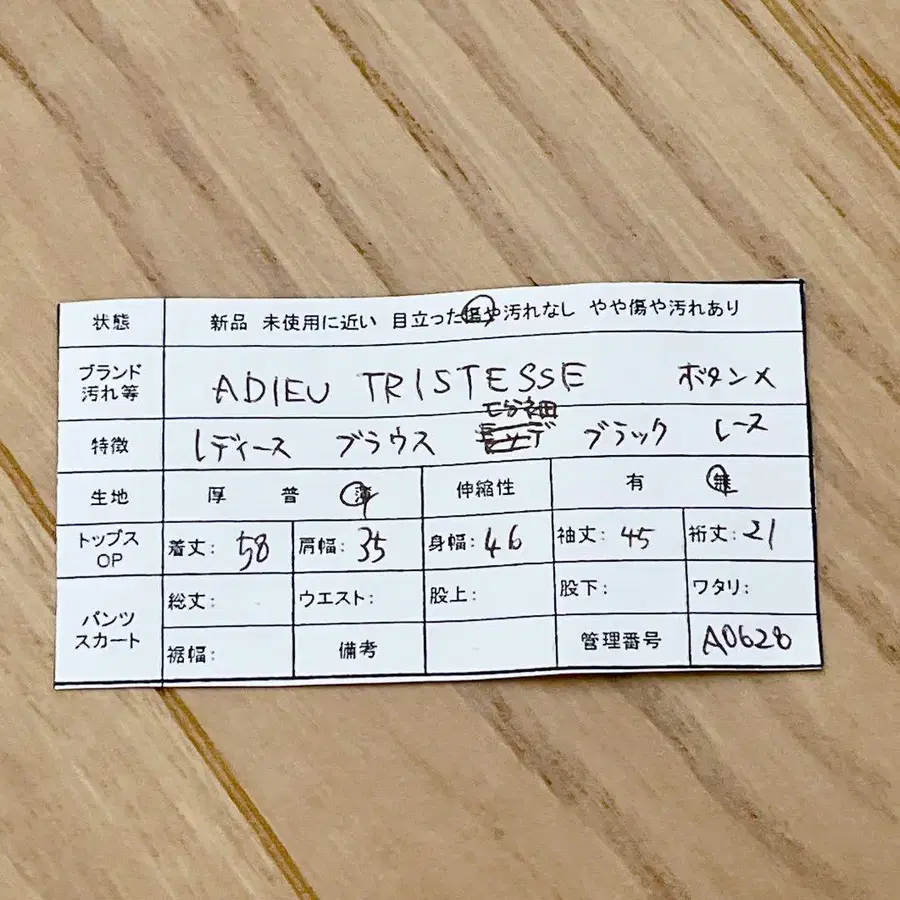 状態 新品 未使用に近い 目立った傷や汚れなし やや傷や汚れあり
ブランド 汚れ等 ADIEU TRISTESSE ボタンメ
七分袖
特徴 レディース ブラウス ブラック レース
生地 厚 普 薄 伸縮性 有 無
トップス OP 着丈: 58 肩幅: 35 身幅: 46 袖丈: 45 裄丈: 21
パンツ スカート 総丈: ウエスト: 股上: 股下: ワタリ:
裾幅: 備考 管理番号 A0628